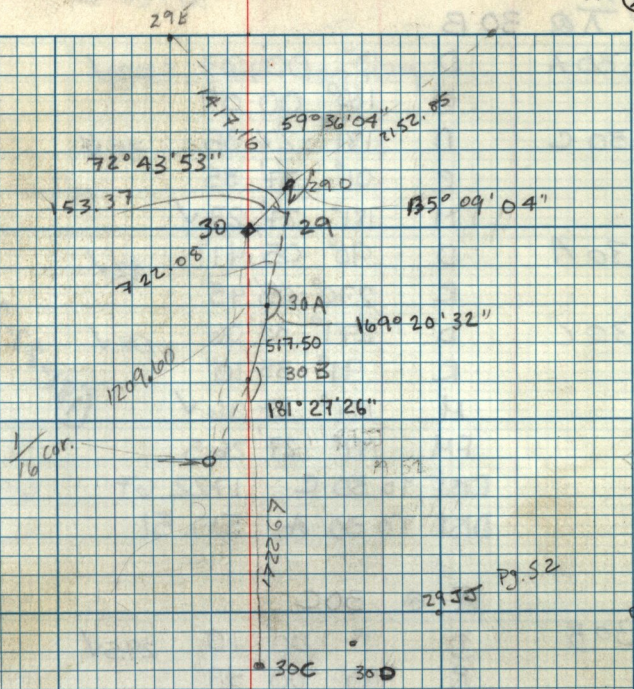 29E
1417.16
59° 36' 04"
2152.85
72° 43' 53"
290
153.37
135° 09' 04"
30
29
722.08
30A
169° 20' 32"
517.50
30B
1209.60
181° 27' 26"
1/16 cor.
1722.67
29JJ Pg. 52
30C
30D